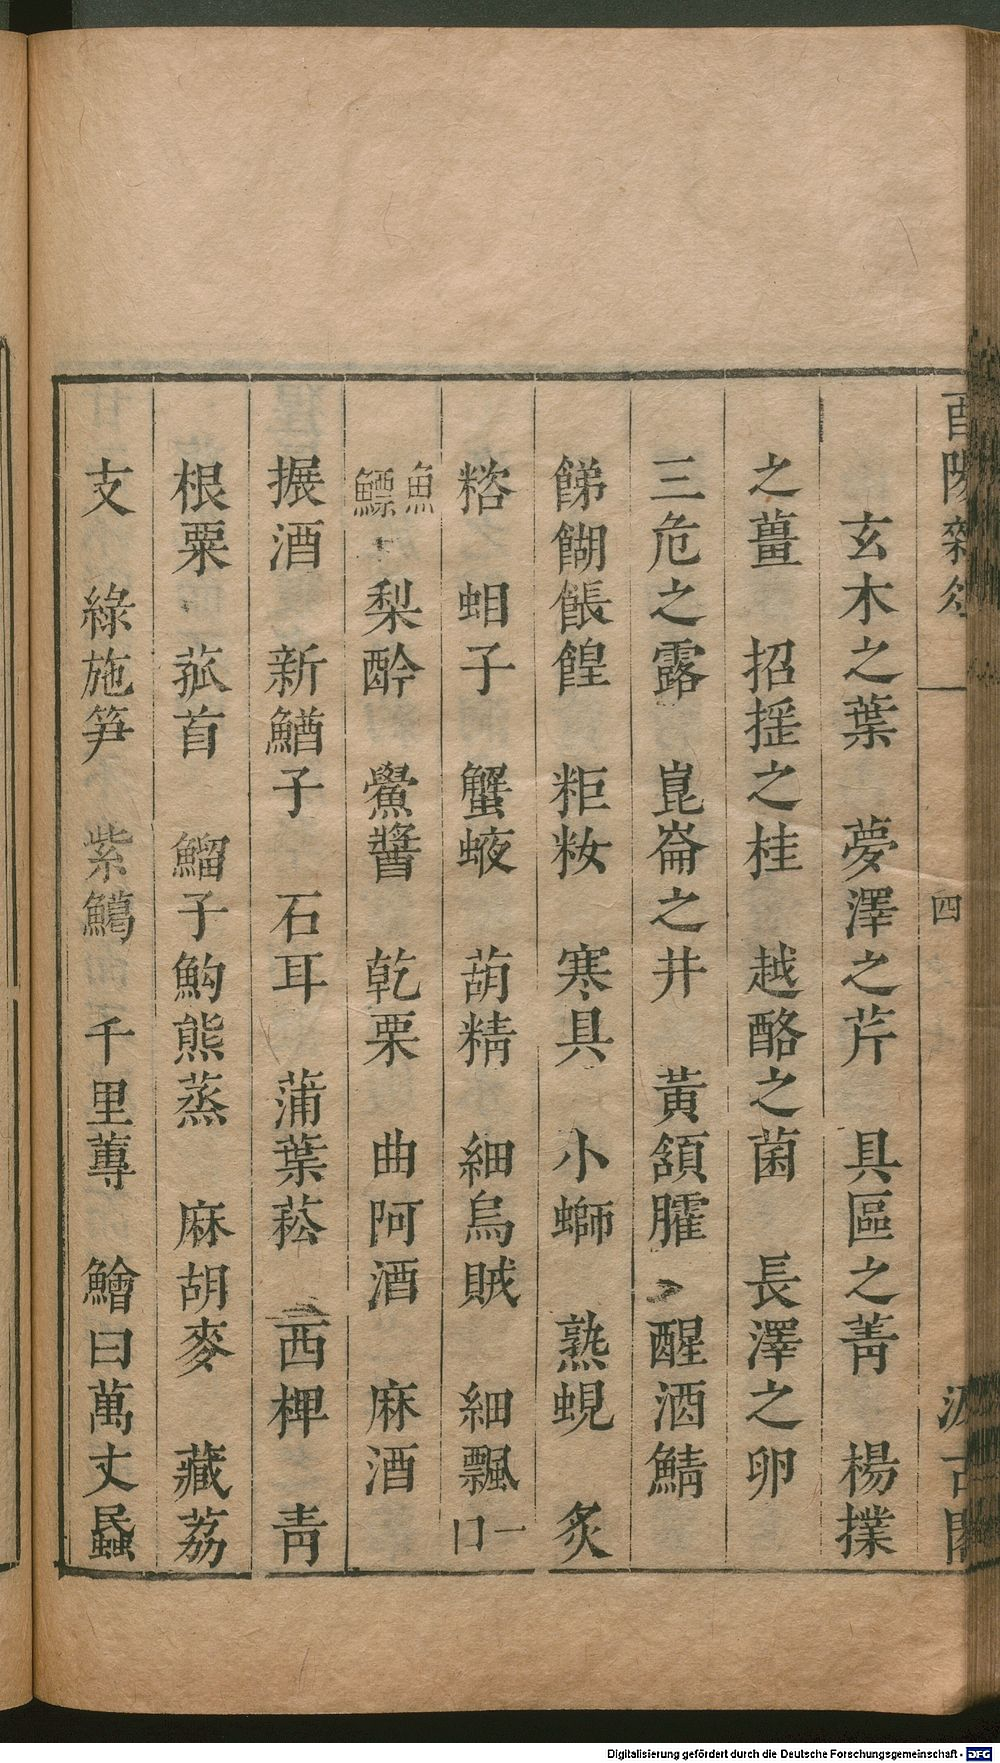 酉陽雜俎 四 汲古閣
玄木之葉 夢澤之芹 具區之菁 楊撲
之薑 招搖之桂 越酪之菌 長澤之卵
三危之露 崑崙之井 黃頷臛 醒酒鯖
餙餬餦餭 粔籹 寒具 小螄 熟蜆 炙
糌 蛆子 蟹蝛 葫精 細烏賊 細飄一口
魚鰾 梨䣼 鱟醬 乾栗 曲阿酒 麻酒
搌酒 新鰌子 石耳 蒲葉菘 西椑 青
根粟 菰首 鰡子鮈熊蒸 麻胡麥 藏荔
支 綠施笋 紫鱎 千里蓴 鱠曰萬丈蟁
Digitalisierung gefördert durch die Deutsche Forschungsgemeinschaft - DFG